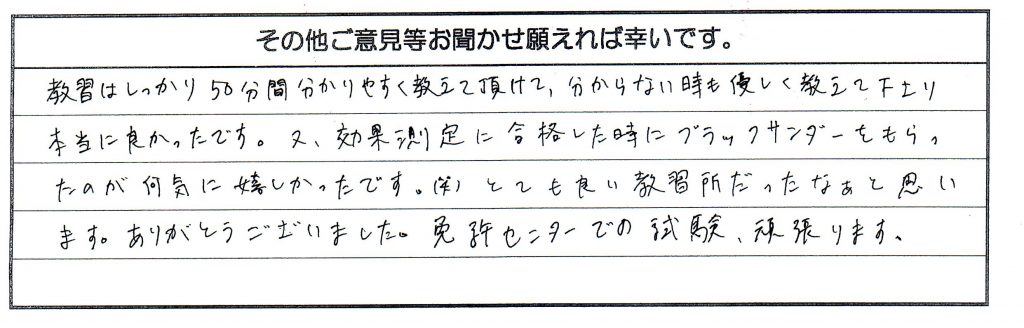 その他ご意見等お聞かせ願えれば幸いです。
教習はしっかり50分間分かりやすく教えて頂けて、分からない時も優しく教えて下さり
本当に良かったです。又、効果測定に合格した時にブラックサンダーをもらっ
たのが何気に嬉しかったです。(笑) とても良い教習所だったなぁと思い
ます。ありがとうございました。免許センターでの試験、頑張ります。